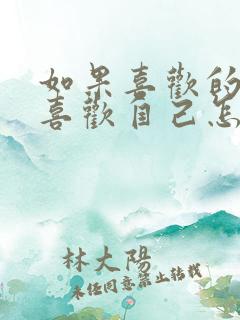 如果喜歡的
喜歡自己怎
林大陽
未經同意禁止轉載